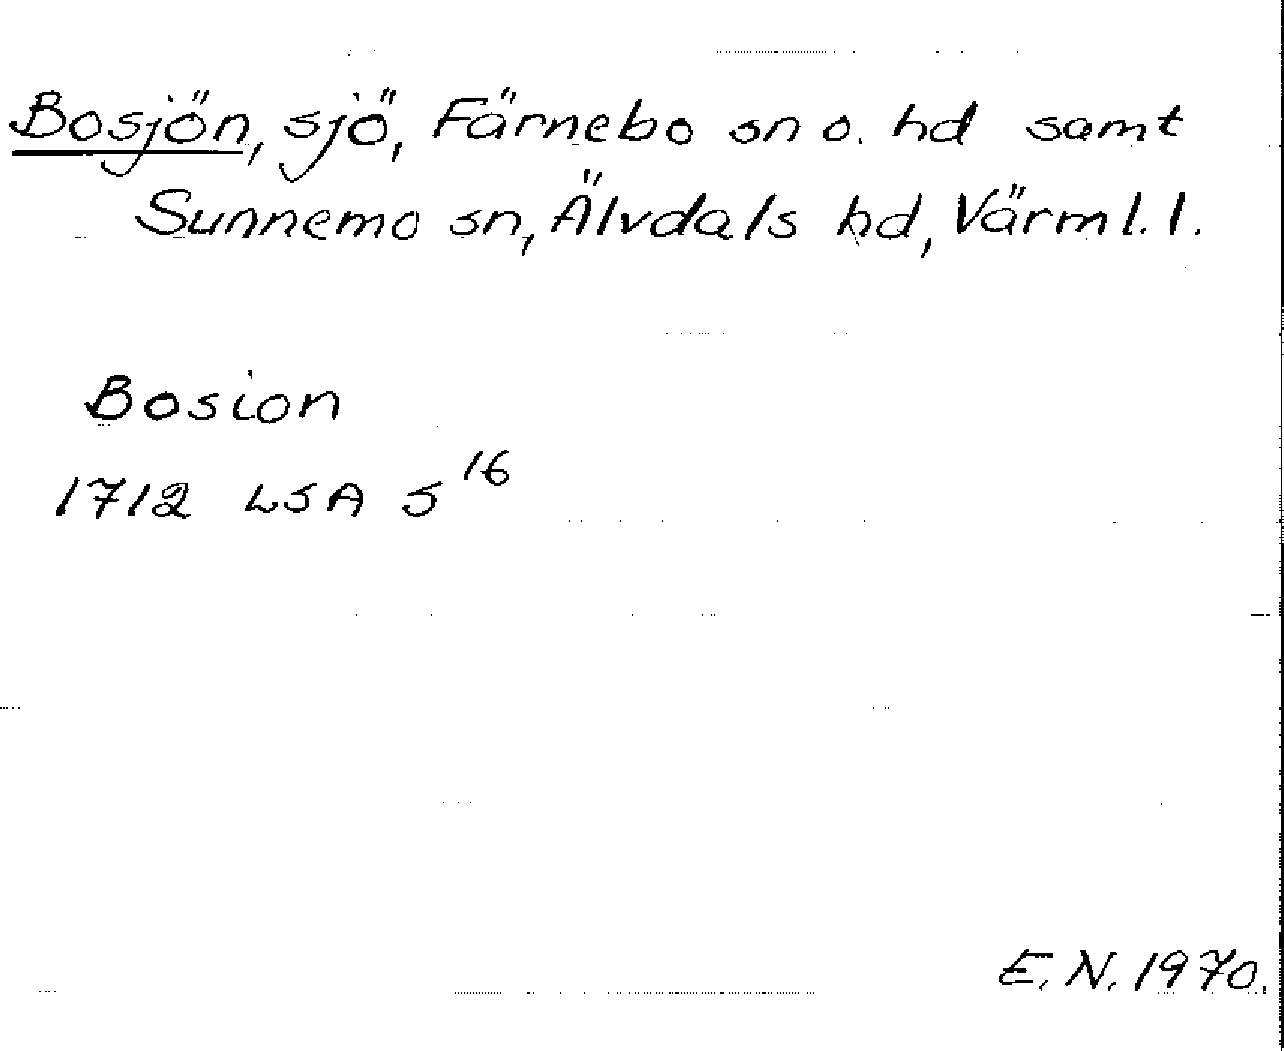 Bosjön, sjö, Färnebo sn o. hd samt
Sunnemo sn, Älvdals hd, Värml. l.
Bosion
1712 LSA S 16
E.N. 1970.